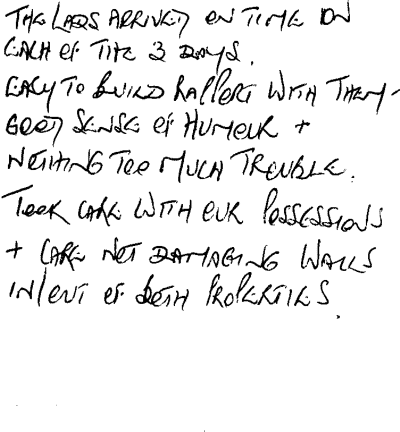 THE LADS ARRIVED ON TIME ON
EACH OF THE 3 DAYS.
EASY TO BUILD RAPPORT WITH THEM -
GOOD SENSE OF HUMOUR +
NOTHING TOO MUCH TROUBLE.
TOOK CARE WITH OUR POSSESSIONS
+ CARE NOT DAMAGING WALLS
IN/OUT OF BOTH PROPERTIES.